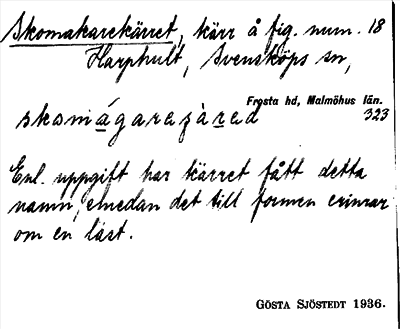 Skomakarekärret, kärr å fig. num. 18
Harphult, Svensköps sn,
Frosta hd, Malmöhus län.
skomágaregàred 323
Enl. uppgift har kärret fått detta
namn, emedan det till formen erinrar
om en läst.
GÖSTA SJÖSTEDT 1936.